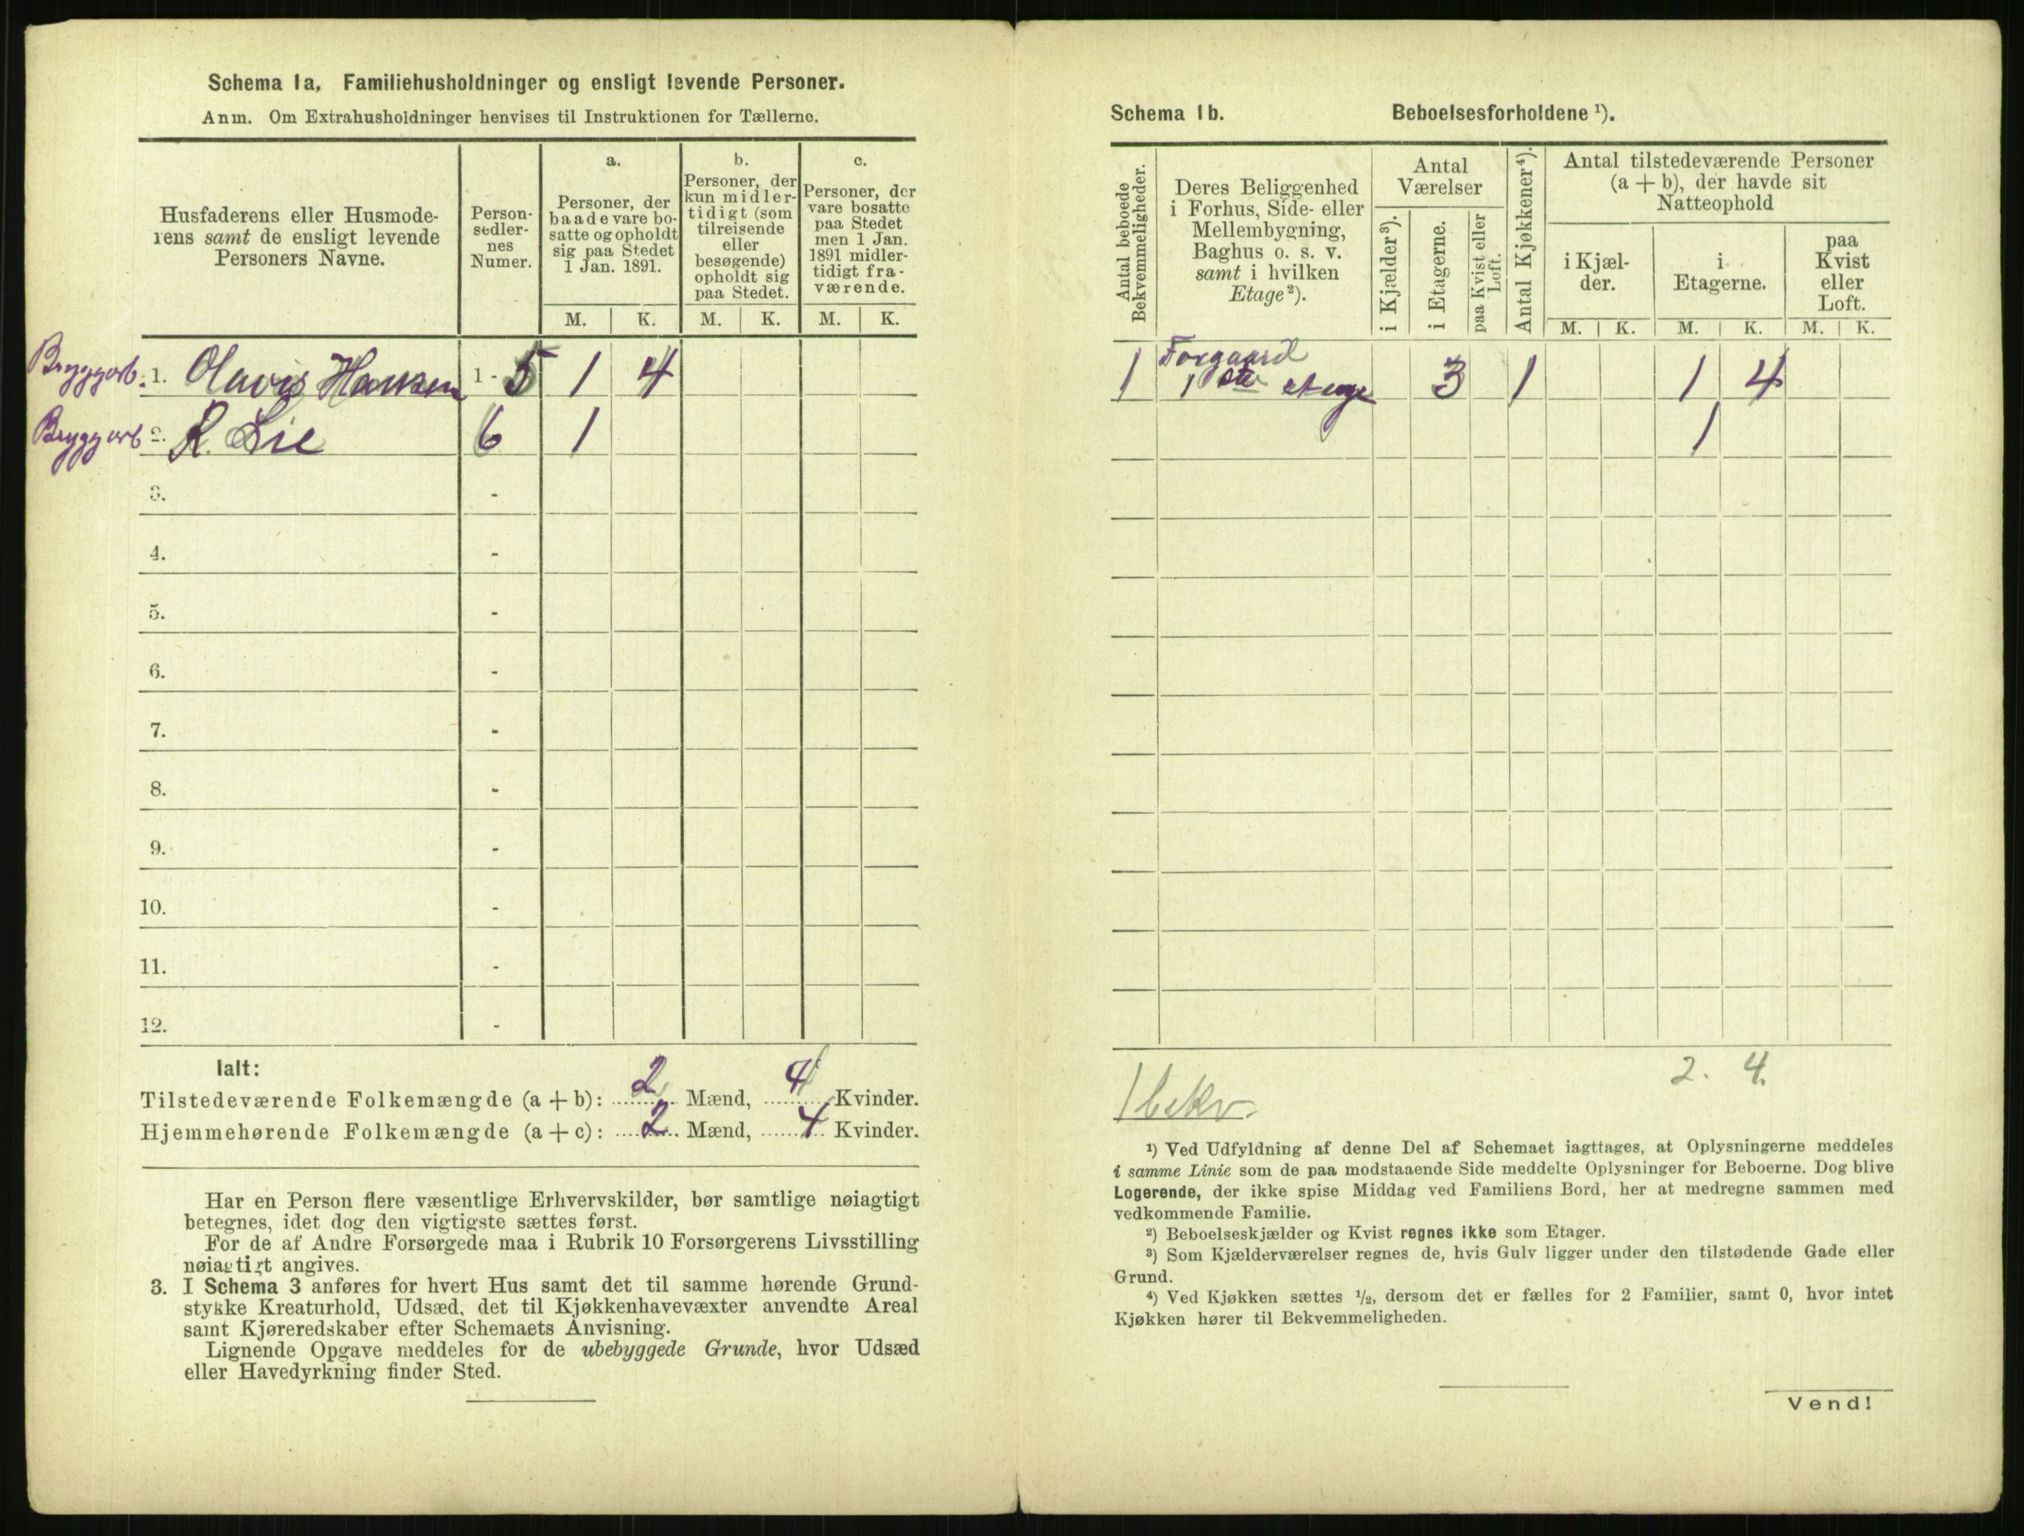 Schema 1a. Familiehusholdninger og ensligt levende Personer.
Anm. Om Extrahusholdninger henvises til Instruktionen for Tællerne.
Husfaderens eller Husmode-
rens samt de ensligt levende
Personers Navne.
Person-
sedler-
nes
Numer.
a.
Personer, der
baade vare bo-
satte og opholdt
sig paa Stedet
1 Jan. 1891.
b.
Personer, der
kun midler-
tidigt (som
tilreisende
eller
besøgende)
opholdt sig
paa Stedet.
c.
Personer, der
vare bosatte
paa Stedet
men 1 Jan.
1891 midler-
tidigt fra-
værende.
M. K. M. K. M. K.
Bryggarb. 1. Olavis Hansen 1 - 5 1 4
Bryggarb 2. R. Lie 6 1
3. -
4. -
5. -
6. -
7. -
8. -
9. -
10. -
11. -
12. -
Ialt:
Tilstedeværende Folkemængde (a + b): 2 Mænd, 4 Kvinder.
Hjemmehørende Folkemængde (a + c): 2 Mænd, 4 Kvinder.
Har en Person flere væsentlige Erhvervskilder, bør samtlige nøiagtigt
betegnes, idet dog den vigtigste sættes først.
For de af Andre Forsørgede maa i Rubrik 10 Forsørgerens Livsstilling
nøiagtigt angives.
3. I Schema 3 anføres for hvert Hus samt det til samme hørende Grund-
stykke Kreaturhold, Udsæd, det til Kjøkkenhavevæxter anvendte Areal
samt Kjøreredskaber efter Schemaets Anvisning.
Lignende Opgave meddeles for de ubebyggede Grunde, hvor Udsæd
eller Havedyrkning finder Sted.
Schema 1b. Beboelsesforholdene ¹).
Antal beboede
Bekvemmeligheder.
Deres Beliggenhed
i Forhus, Side- eller
Mellembygning,
Baghus o. s. v.
samt i hvilken
Etage²).
Antal
Værelser
i Kjælder³).
i Etagerne.
paa Kvist eller
Loft.
Antal Kjøkkener⁴).
Antal tilstedeværende Personer
(a + b), der havde sit
Natteophold
i Kjæl-
der.
i
Etagerne.
paa
Kvist
eller
Loft.
M. K. M. K. M. K.
1 Forgaard
1 ste etage 3 1 1 4
1
2. 4.
1 bekv.
¹) Ved Udfyldning af denne Del af Schemaet iagttages, at Oplysningerne meddeles
i samme Linie som de paa modstaaende Side meddelte Oplysninger for Beboerne. Dog blive
Logerende, der ikke spise Middag ved Familiens Bord, her at medregne sammen med
vedkommende Familie.
²) Beboelseskjælder og Kvist regnes ikke som Etager.
³) Som Kjælderværelser regnes de, hvis Gulv ligger under den tilstødende Gade eller
Grund.
⁴) Ved Kjøkken sættes ½, dersom det er fælles for 2 Familier, samt 0, hvor intet
Kjøkken hører til Bekvemmeligheden.
Vend!